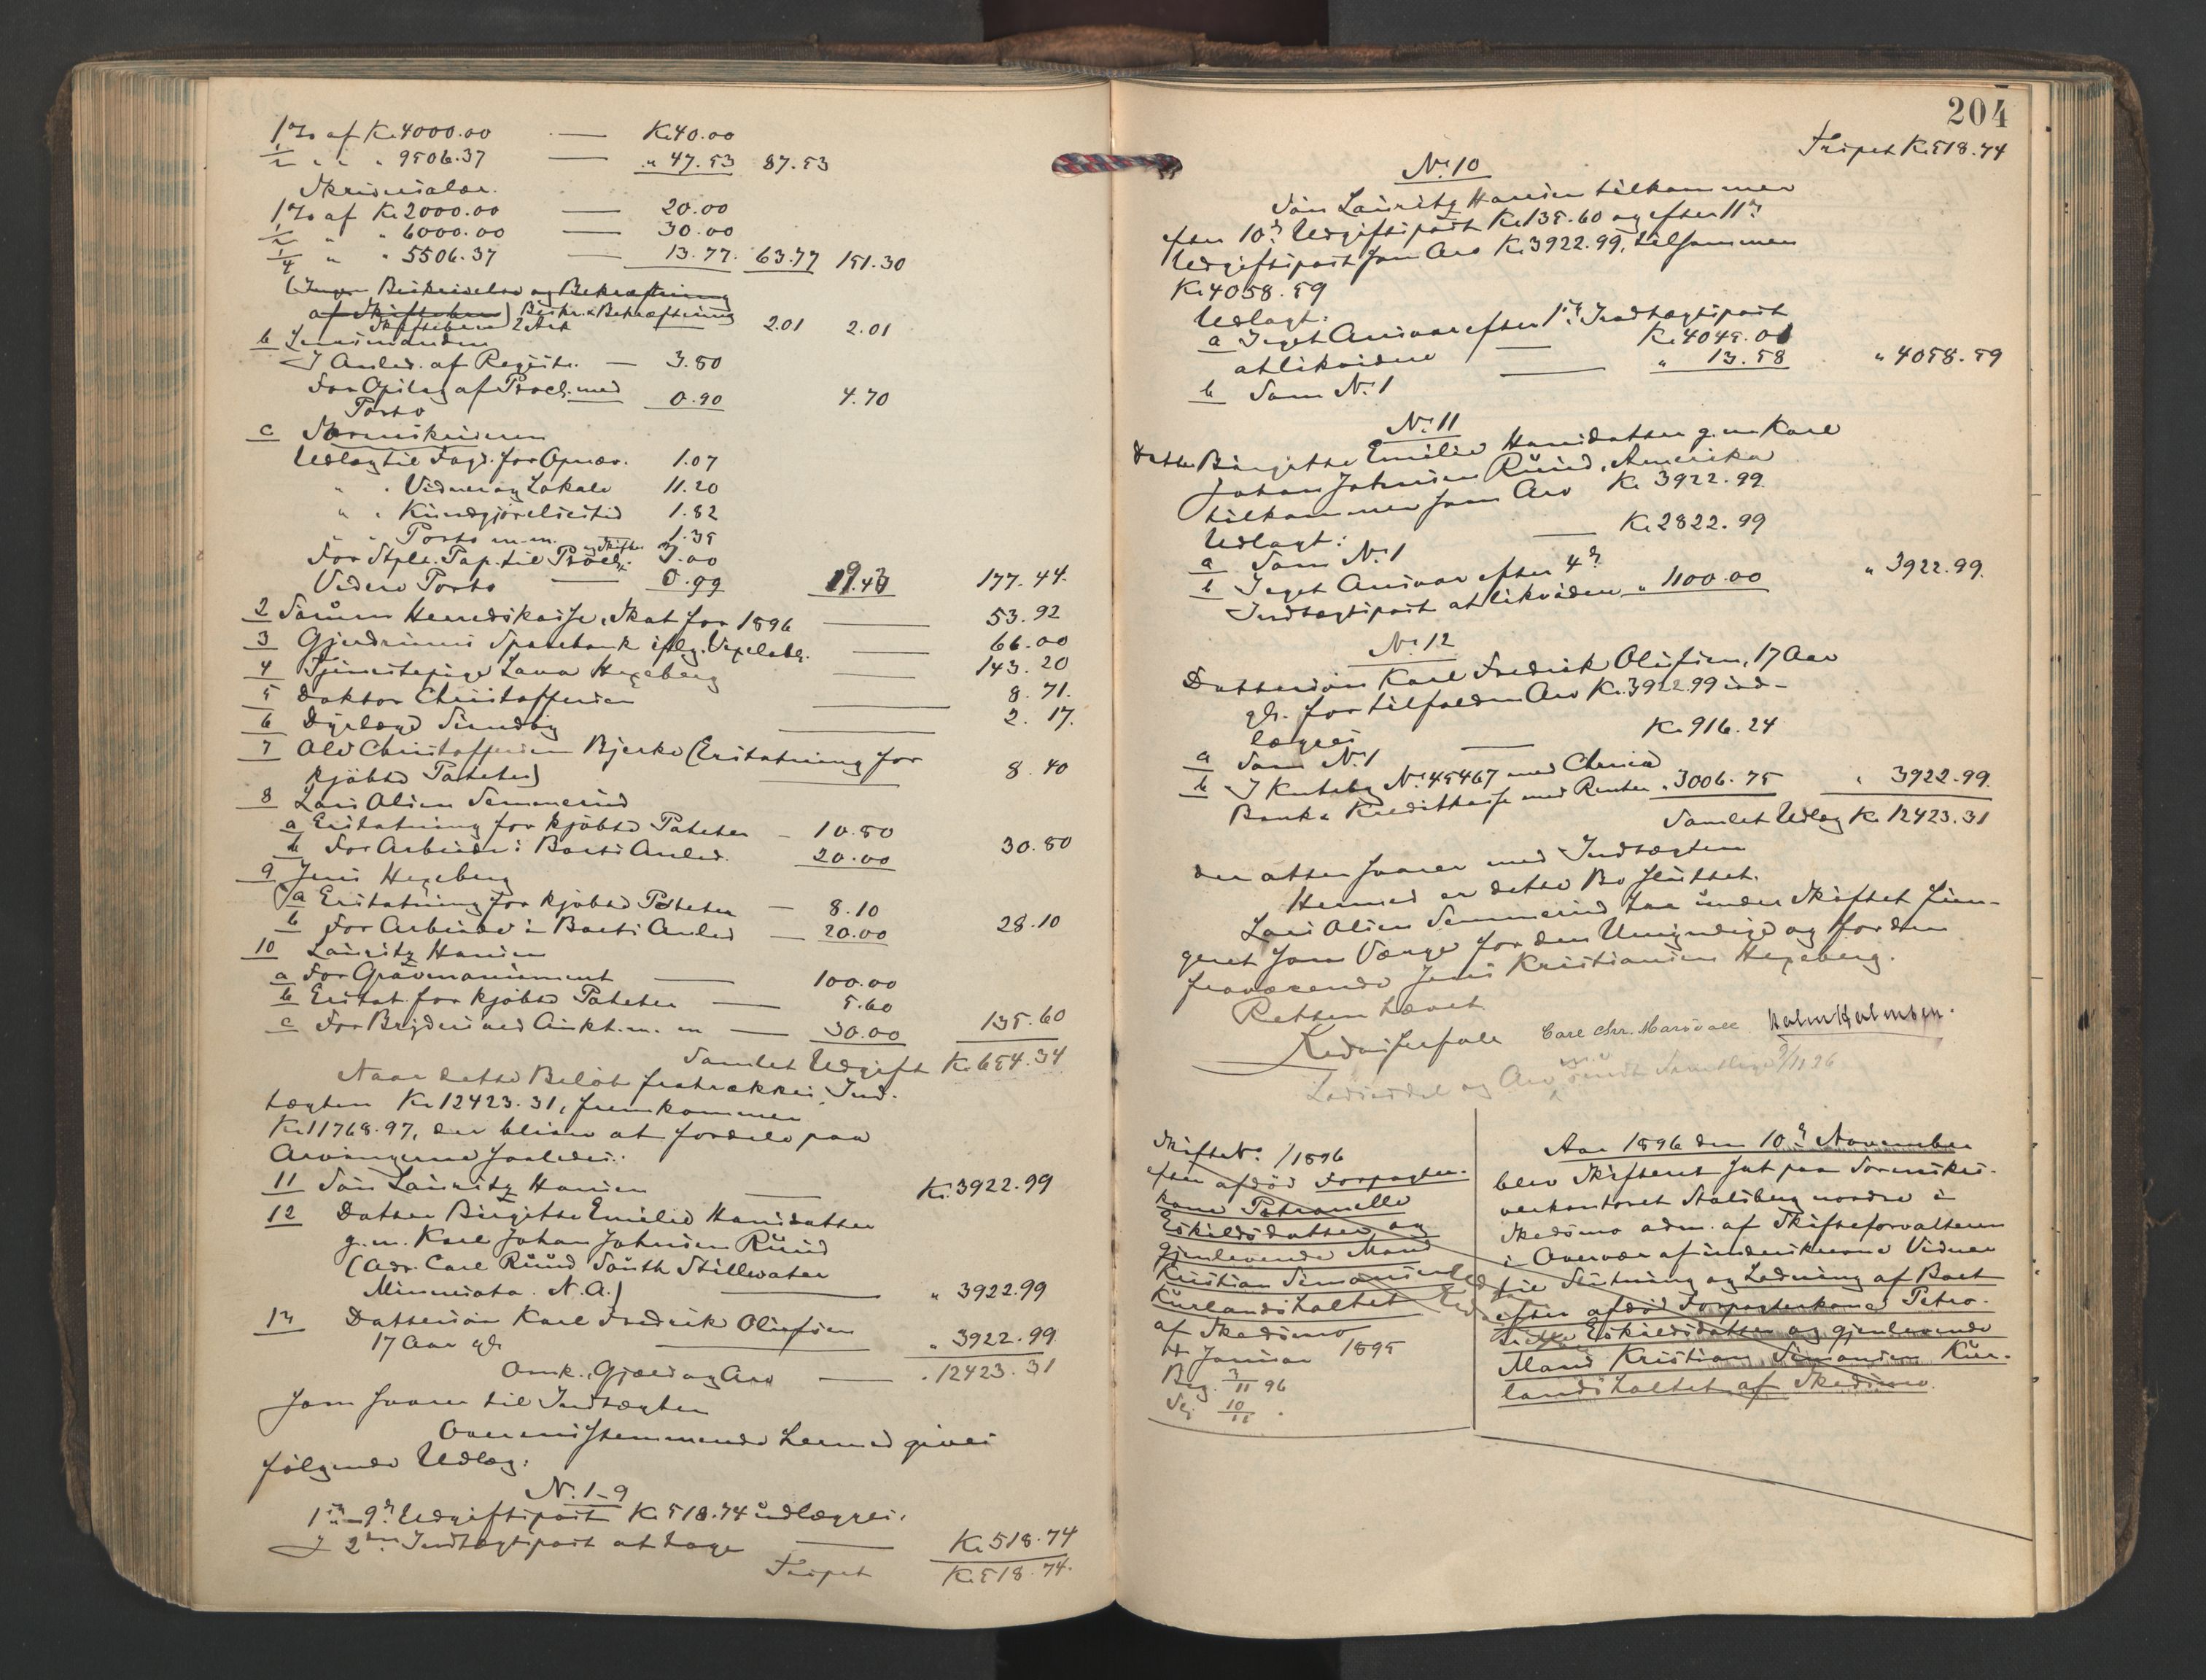 1% af Kr 4000.00 — Kr 40.00
1/2 " " " 9506.37 — " 47.53 87.53
Skriversalær.
1% af Kr 2000.00 — 20.00
1/2 " " 6000.00 — 30.00
1/4 " " 5506.37 — 13.77. 63.77 151.30
(Ingen Beskrivelse og Bekræftning
af Skiftebrev) Beskr. & Bekræftning
Skiftebrev 2 Ark 2.01 2.01
b Lensmanden
I Anled. af Registr. — 3.80
For Opslag af Procl. med
Porto 0.90 4.70
c Sorenskriveren
Udlæg til Dagt. for Opnær. 1.07
" " Vidner og Lokale 11.20
" " Kundgjørelsestid 1.82
" " Porto m.m. 1.35
For Stplt. Pap. til Procl. og Skifte 3.00
Videre Porto — 0.99 19.43 177.44.
2 Sørum Herredskasse, Skat for 1896 — 53.92
3 Gjerdrums Sparebank iflg. Vexelobl. — 66.00
4 Tjenestepige Lava Hexeberg — 143.20
5 Doktor Christoffersen — 8.71.
6 Dyrlæge Sundby — 2.17.
7 Ole Christoffersen Bjerke (Erstatning for
kjøbte Poteter) — 8.40
8 Lars Olsen Semmerud
a Erstatning for kjøbte Poteter — 10.80
b For Arbeide i Boets Anled. 20.00 30.80
9 Jens Hexeberg
a Erstatning for kjøbte Poteter — 8.10
b For Arbeide i Boets Anled — 20.00 28.10
10 Lauritz Hansen
a For Gravmonument — 100.00
b Erstat. for kjøbte Poteter — 5.60
c For Bryderi ved Aukt. m. m — 30.00 135.60
Samlet Udgift Kr 654.34
Naar dette Beløb fratrækkes Ind-
tægten Kr 12423.31, fremkommer
Kr 11768.97, der bliver at fordele paa
Arvingerne saaledes:
11 Søn Lauritz Hansen — Kr. 3922.99
12 Datter Birgitte Emilie Hansdatter
g. m. Karl Johan Johnsen Ruud
(Adr. Carl Ruud South Stillwater
Minnesota. N.A.) — " 3922.99
13 Dattersøn Karl Fredrik Olufsen
17 Aar gl. — " 3922.99
Omk., Gjæld og Arv — " 12423.31
som svarer til Indtægten
Overensstemmende hermed gives
følgende Udlæg:
N: 1-9
1ste–9de Udgiftspost Kr 518.74 udlægges.
I 2den Indtægtspost at tage — Kr 518.74
Transport Kr 518.74.
204
Transport Kr 518.74
N: 10
Søn Lauritz Hansen tilkommer
efter 10de Udgiftspost Kr 135.60 og efter 11te
Udgiftspost som Arv Kr 3922.99, tilsammen
Kr 4058.59
Udlagt:
a I eget Ansvar efter 1ste Indtægtspost
at likvidere — Kr 4045.01
b Som N: 1 — " 13.58 " 4058.59
N: 11
Datter Birgitte Emilie Hansdatter g. m. Karl
Johan Johnsen Ruud, Amerika
tilkommer som Arv Kr 3922.99
Udlagt:
a Som N: 1 — Kr 2822.99
b I eget Ansvar efter 4de
Indtægtspost at likvidere " 1100.00 " 3922.99.
N: 12
Dattersøn Karl Fredrik Olufsen, 17 Aar
gl. for tilfalden Arv Kr. 3922.99 ud-
lægges
a Som N: 1 — Kr. 916.24
b I Kntrabg N: 45467 med Chria
Bank & Kreditkasse med Renter " 3006.75 " 3922.99.
Samlet Udlæg Kr 12423.31
der atter svarer med Indtægten
Hermed er dette Bo sluttet.
Lars Olsen Semmerud har under Skiftet fun-
geret som Værge for den Umyndige og for den
fraværende Jens Kristiansen Hexeberg.
Retten hævet
Carl Chr. Marsvall Halm Halmsen.
Lodseddel og Arv sendt samtlige 9/11 96
Skifte N: /1896
efter afdød Forpagter-
kone Petronelle
Eskildsdatter og
gjenlevende Mand
Kristian Simonsen
Kurlandshaltet
af Skedsmo
Januar 1895
Beg. 3/11 96
Sl. 10/11 "
Aar 1896 den 10de November
blev Skifteret sat paa Sorenskri-
verkontoret Stalsberg nordre i
Skedsmo adm. af Skifteforvalteren
i Overvær af underskrevne Vidner
til Slutning og Lodning af Boet
efter afdød Forpagterkone Petro-
nelle Eskildsdatter og gjenlevende
Mand Kristian Simonsen Kur-
landshaltet af Skedsmo.